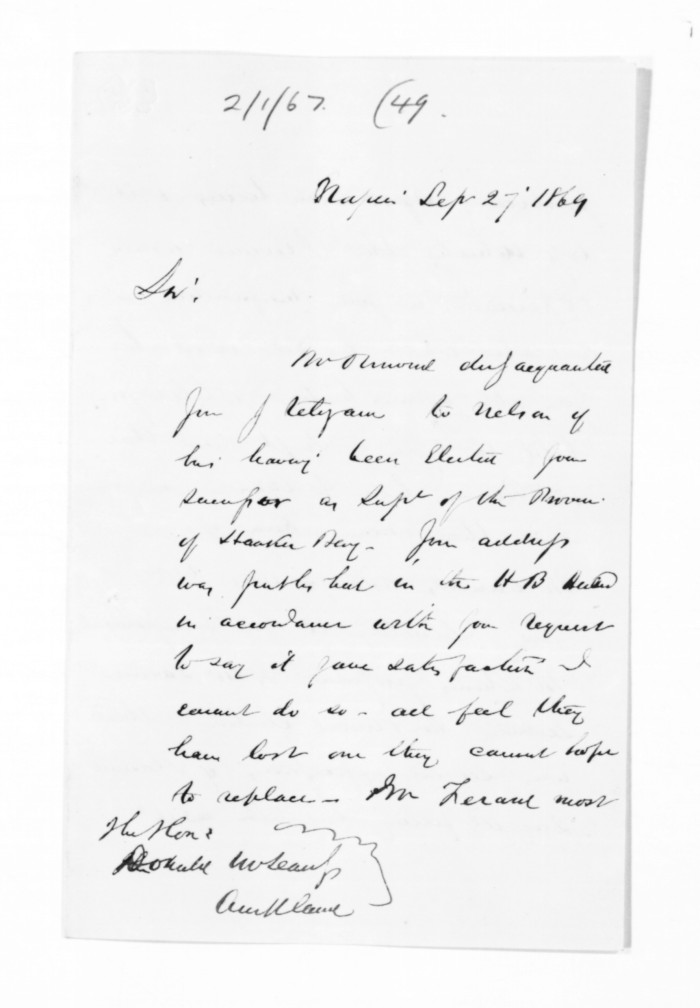 2/1/67. (49.
Napier Sept 27 1869
Sir.
Mr Ormond duly acquainted
you by telegram to Nelson of
his having been Elected your
successor as Supt of the Provce
of Hawkes Bay - Your address
was published in the H B Herald
in accordance with your request
to say it gave satisfaction I
cannot do so - all feel they
have lost one they cannot hope
to replace - most
The Honle
Donald McLean
Auckland